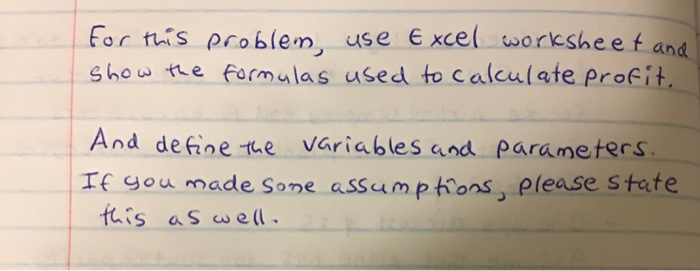 For this problem, use Excel worksheet and
show the formulas used to calculate profit.
And define the variables and parameters.
If you made some assumptions, please state
this as well.